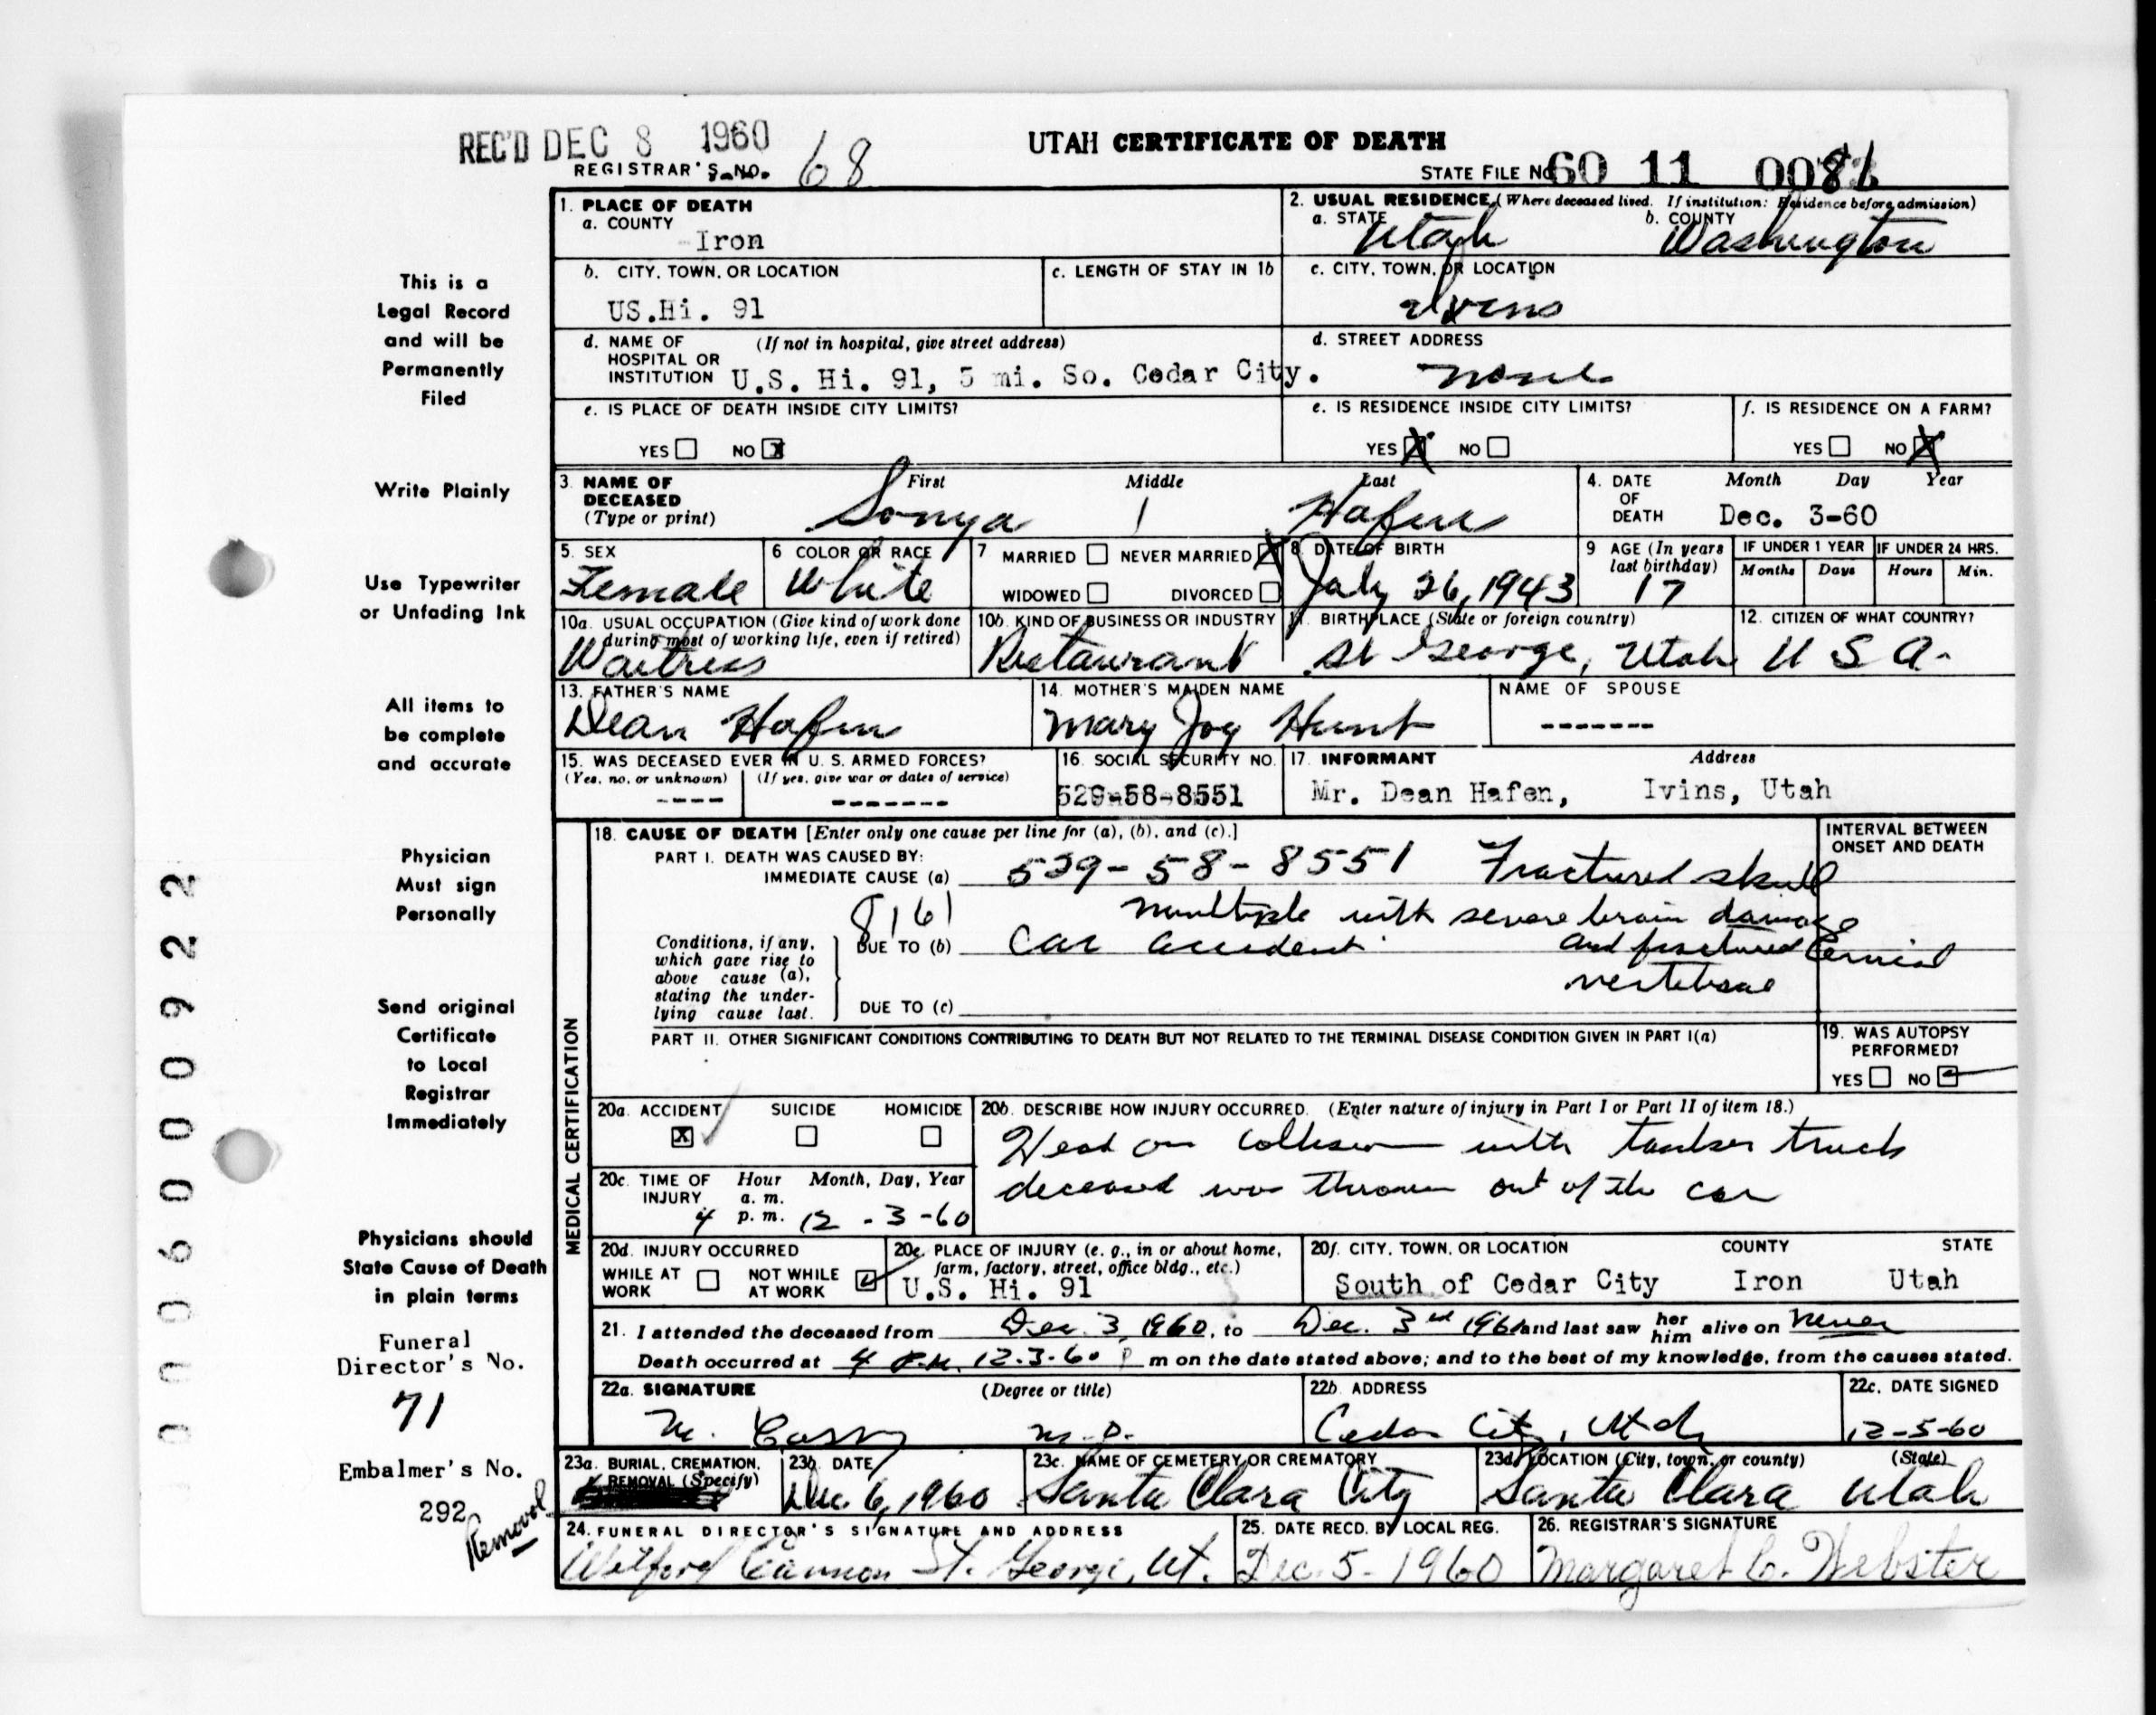 REC'D DEC 8 1960
UTAH CERTIFICATE OF DEATH
REGISTRAR'S NO. 68
STATE FILE NO. 60 11 0081
1. PLACE OF DEATH
a. COUNTY
Iron
2. USUAL RESIDENCE (Where deceased lived. If institution: Residence before admission)
a. STATE Utah b. COUNTY Washington
b. CITY, TOWN, OR LOCATION
US.Hi. 91
c. LENGTH OF STAY IN 1b
c. CITY, TOWN, OR LOCATION
Ivins
d. NAME OF HOSPITAL OR INSTITUTION (If not in hospital, give street address)
U.S. Hi. 91, 5 mi. So. Cedar City.
d. STREET ADDRESS
None
e. IS PLACE OF DEATH INSIDE CITY LIMITS?
YES NO X
e. IS RESIDENCE INSIDE CITY LIMITS?
YES X NO
f. IS RESIDENCE ON A FARM?
YES NO X
3. NAME OF DECEASED (Type or print)
First Middle Last
Sonya / Hafen
4. DATE OF DEATH
Month Day Year
Dec. 3-60
5. SEX
Female
6 COLOR OR RACE
White
7 MARRIED NEVER MARRIED X
WIDOWED DIVORCED
8. DATE OF BIRTH
July 26, 1943
9 AGE (In years last birthday)
17
IF UNDER 1 YEAR
Months Days
IF UNDER 24 HRS.
Hours Min.
10a. USUAL OCCUPATION (Give kind of work done during most of working life, even if retired)
Waitress
10b. KIND OF BUSINESS OR INDUSTRY
Restaurant
11. BIRTHPLACE (State or foreign country)
St George, Utah
12. CITIZEN OF WHAT COUNTRY?
U S A.
13. FATHER'S NAME
Dean Hafen
14. MOTHER'S MAIDEN NAME
Mary Joy Hunt
NAME OF SPOUSE
-------
15. WAS DECEASED EVER IN U. S. ARMED FORCES?
(Yes, no, or unknown) (If yes, give war or dates of service)
---- -------
16. SOCIAL SECURITY NO.
529-58-8551
17. INFORMANT Address
Mr. Dean Hafen, Ivins, Utah
MEDICAL CERTIFICATION
18. CAUSE OF DEATH [Enter only one cause per line for (a), (b), and (c).]
INTERVAL BETWEEN ONSET AND DEATH
PART I. DEATH WAS CAUSED BY:
IMMEDIATE CAUSE (a) 529-58-8551 Fractured skull
8161 multiple with severe brain damage
Conditions, if any, which gave rise to above cause (a), stating the underlying cause last.
DUE TO (b) Car accident and fractured Cervical
vertebrae
DUE TO (c)
PART II. OTHER SIGNIFICANT CONDITIONS CONTRIBUTING TO DEATH BUT NOT RELATED TO THE TERMINAL DISEASE CONDITION GIVEN IN PART I(a)
19. WAS AUTOPSY PERFORMED?
YES NO
20a. ACCIDENT SUICIDE HOMICIDE
X
20b. DESCRIBE HOW INJURY OCCURRED. (Enter nature of injury in Part I or Part II of item 18.)
Head on Collision with tanker truck
deceased was thrown out of the car
20c. TIME OF INJURY
Hour Month, Day, Year
a. m.
4 p. m. 12-3-60
20d. INJURY OCCURRED
WHILE AT WORK NOT WHILE AT WORK
20e. PLACE OF INJURY (e. g., in or about home, farm, factory, street, office bldg., etc.)
U.S. Hi. 91
20f. CITY, TOWN, OR LOCATION COUNTY STATE
South of Cedar City Iron Utah
21. I attended the deceased from Dec. 3, 1960, to Dec. 3rd 1960 and last saw her him alive on never
Death occurred at 4 P.M. 12-3-60 P m on the date stated above; and to the best of my knowledge, from the causes stated.
22a. SIGNATURE (Degree or title)
M. M.D.
22b. ADDRESS
Cedar City, Utah
22c. DATE SIGNED
12-5-60
23a. BURIAL, CREMATION, REMOVAL (Specify)
23b. DATE
Dec 6, 1960
23c. NAME OF CEMETERY OR CREMATORY
Santa Clara City
23d. LOCATION (City, town, or county) (State)
Santa Clara Utah
24. FUNERAL DIRECTOR'S SIGNATURE AND ADDRESS
Wilford Cannon St. George, Ut.
25. DATE RECD. BY LOCAL REG.
Dec. 5 - 1960
26. REGISTRAR'S SIGNATURE
Margaret C. Webster
This is a
Legal Record
and will be
Permanently
Filed
Write Plainly
Use Typewriter
or Unfading Ink
All items to
be complete
and accurate
Physician
Must sign
Personally
Send original
Certificate
to Local
Registrar
Immediately
Physicians should
State Cause of Death
in plain terms
Funeral
Director's No.
71
Embalmer's No.
292
Removal
0006000922